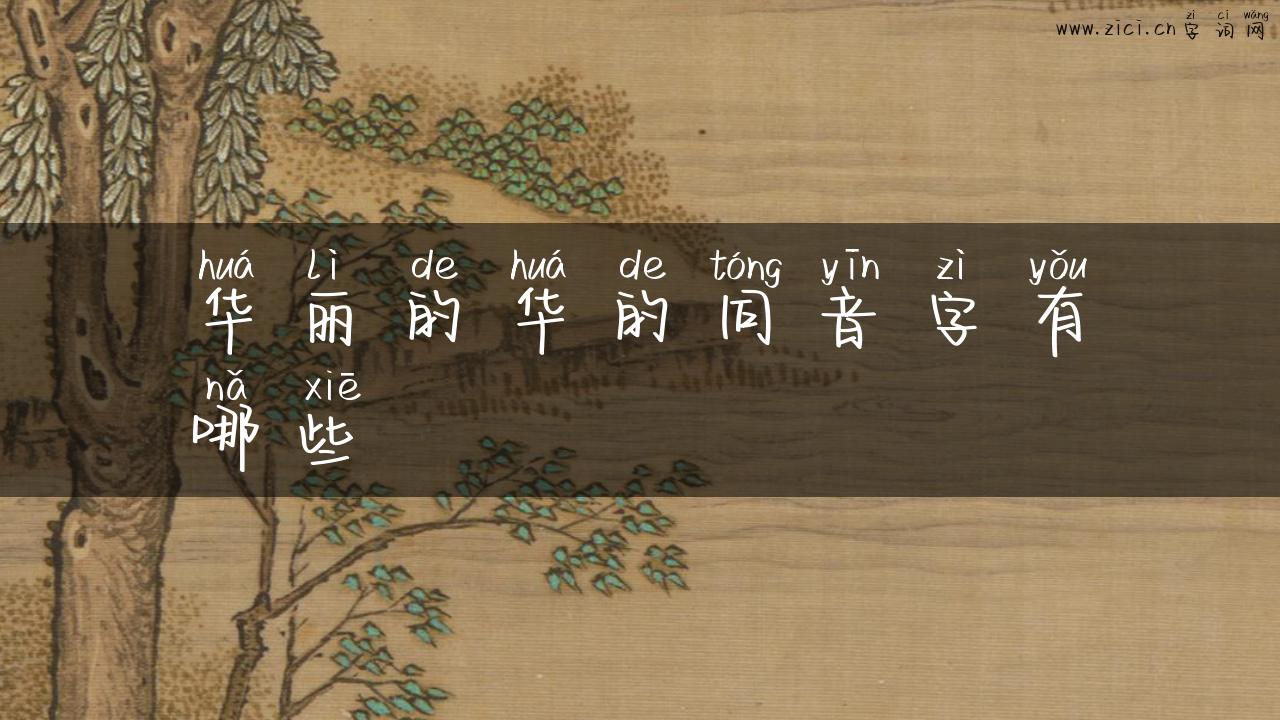 www.zici.cn zì cí wǎng
字词网
huá lì de huá de tóng yīn zì yǒu
华丽的华的同音字有
nǎ xiē
哪些